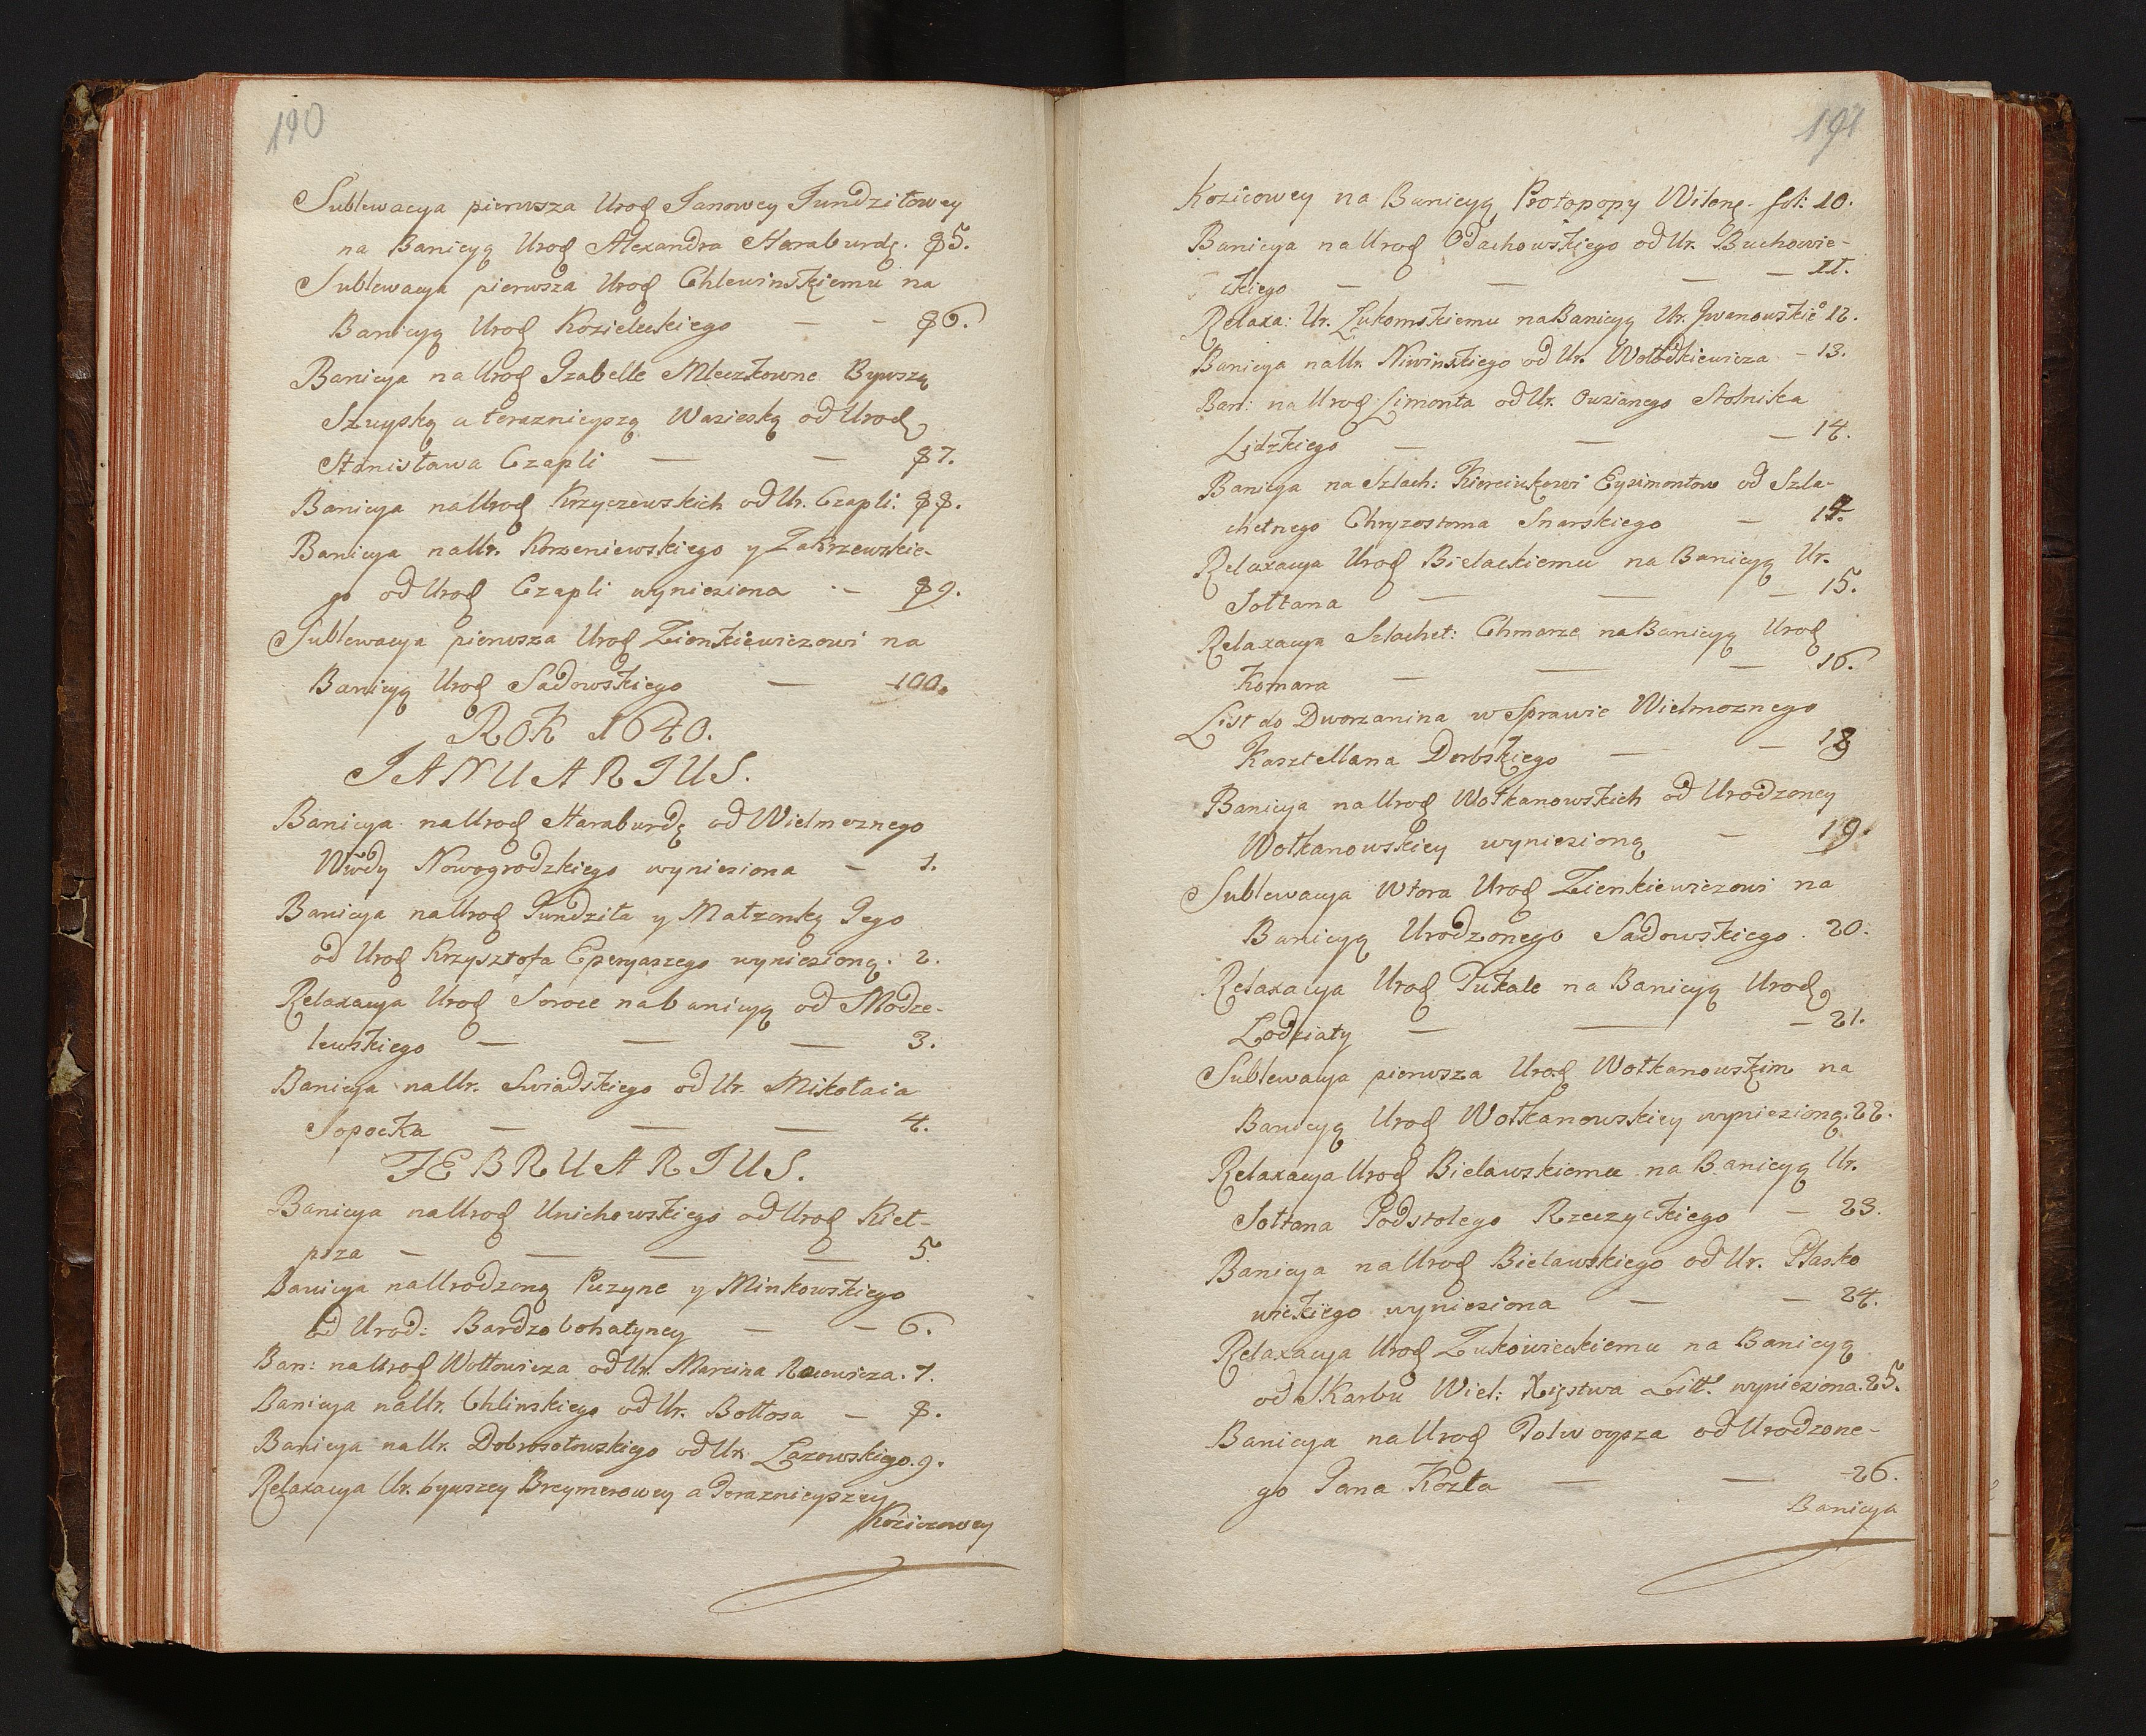 190
Sublewacya pierwsza Urod Janowey Jundziłowey
na Banicyą Urod Alexandra Haraburdę. 85.
Sublewacya pierwsza Urod Chlewinskiemu na
Banicyą Urod Kozieleckiego — - 86.
Banicya na Urod Izabelle Mleczkowne Bywszą
Szuyską a teraznieyszą Wazieską od Urod
Stanisława Czapli — — 87.
Banicya na Urod Krzyczewskich od Ur. Czapli: 88.
Banicya na Ur. Korzeniewskiego y Zakrzewskie-
go od Urod Czapli wyniesiona - 89.
Sublewacya pierwsza Urod Zienkiewiczowi na
Banicyą Urod Sadowskiego — 100.
ROK 1640.
JANUARIUS.
Banicya na Urod Haraburdę od Wielmoznego
Wwdy Nowogrodzkiego wyniesiona — 1.
Banicya na Urod Jundziła y Małzonkę Jego
od Urod Krzysztofa Eperyaszego wyniesioną. 2.
Relaxacya Urod Soroce na banicyą od Modze-
lewskiego — — — 3.
Banicya na Ur. Swiadskiego od Ur. Mikołaia
Sopocka — — — 4.
FEBRUARIUS.
Banicya na Urod Unichowskiego od Urod Kieł-
psza — — — — 5.
Banicya na Urodzoną Puzyne y Minkowskiego
od Urod: Bardzobohatyney — - 6.
Ban: na Urod Wołłowicza od Ur. Marcina Racewicza. 7.
Banicya na Ur. Chlinskiego od Ur. Bołtosa — 8.
Banicya na Ur. Dobrosołowskiego od Ur. Lazowskiego. 9.
Relaxacya Ur. bywszey Breymerowey a Teraznieyszey
Koziczowey
191
Kozicowey na Banicyą Protopopy Wileng. fol: 10.
Banicya na Urod Odachowskiego od Ur. Buchowie-
ckiego — — — — 11.
Relaxa: Ur. Łukomskiemu na Banicyą Ur. Iwanowskie° 12.
Banicya na Ur. Niwinskiego od Ur. Wołodkiewicza - 13.
Ban: na Urod Limonta od Ur. Ouzianego Stolnika
Lidzkiego — — — 14.
Banicya na Szlach: Kierciukowi Eysimontow od Szla-
chetnego Chryzostoma Snarskiego — 14.
Relaxacya Urod Bielackiemu na Banicyą Ur.
Sołtana — — — 15.
Relaxacya Szlachet: Chmarze na Banicyą Urod
Komara — — — 16.
List do Dworzanina w Sprawie Wielmoznego
Kasztellana Derbskiego — — 18
Banicya na Urod Wołkanowskich od Urodzoney
Wołkanowskiey wyniesioną — 19.
Sublewacya Wtora Urod Zienkiewiczowi na
Banicyą Urodzonego Sadowskiego. 20.
Relaxacya Urod Pukale na Banicyą Urod
Łodziaty — — — 21.
Sublewacya pierwsza Urod Wołkanowskim na
Banicyą Urod Wołkanowskiey wyniesioną. 22.
Relaxacya Urod Bielawskiemu na Banicyą Ur.
Sołtana Podstolego Rzeczyckiego — 23.
Banicya na Urod Bielawskiego od Ur. Płasko
wickiego wyniesiona — — 24.
Relaxacya Urod Zukowieckiemu na Banicyą
od Skarbu Wiel: Xięstwa Litt. wyniesiona. 25.
Banicya na Urod Polwoysza od Urodzone-
go Jana Kozła — — -26.
Banicya